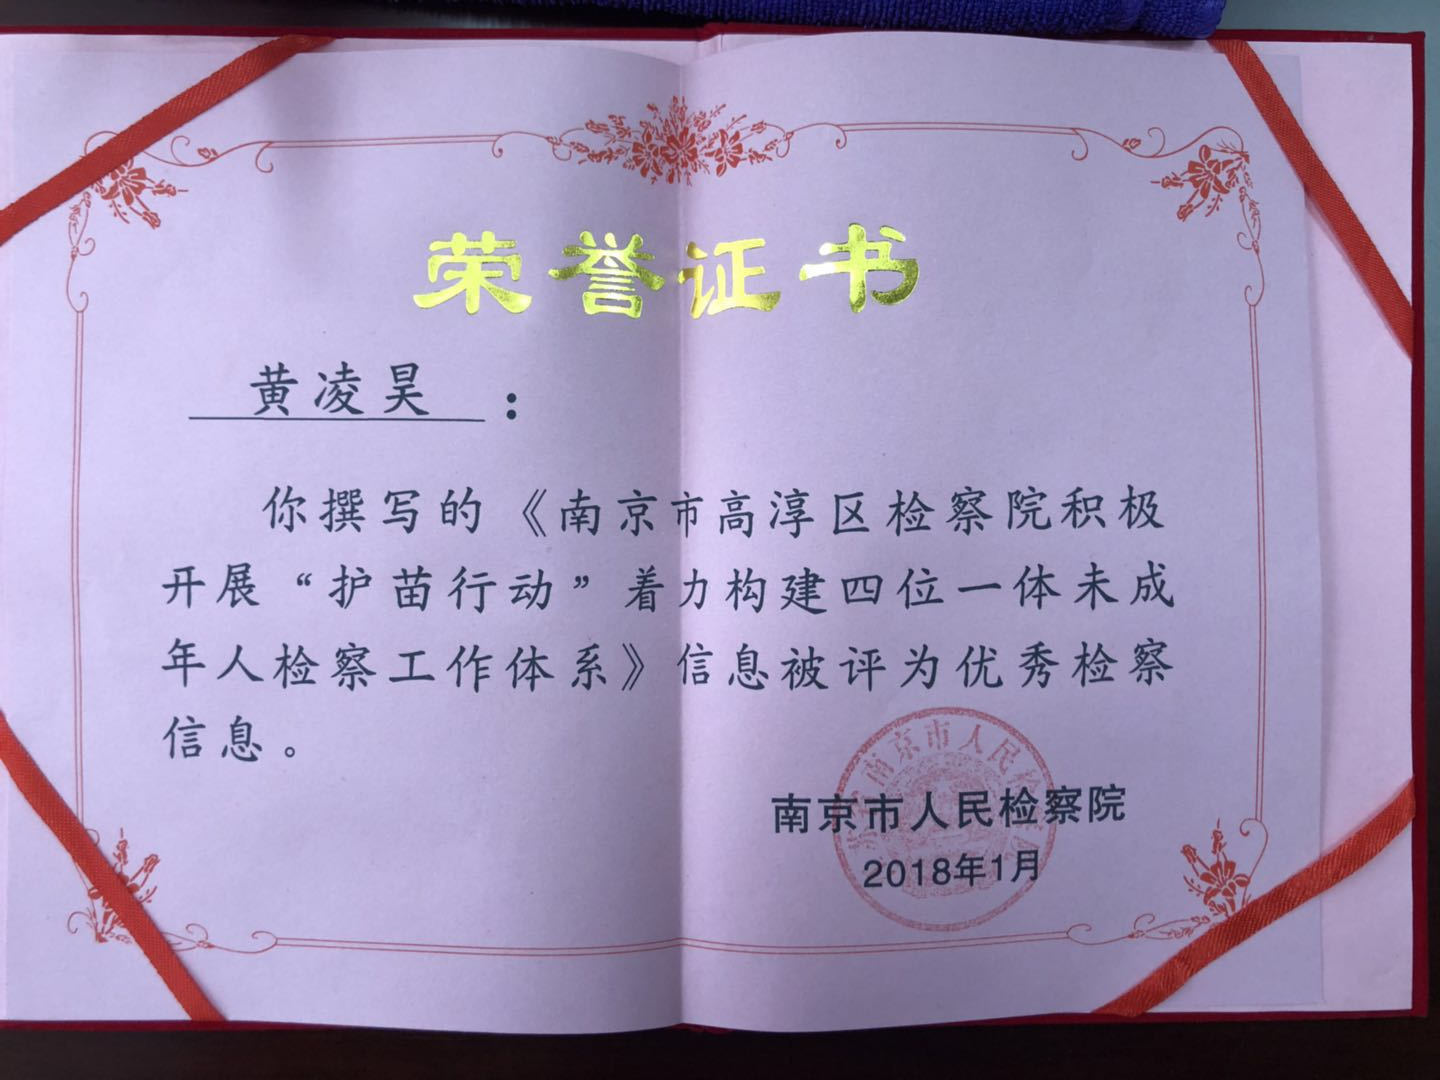 荣誉证书
黄凌昊：
你撰写的《南京市高淳区检察院积极
开展“护苗行动”着力构建四位一体未成
年人检察工作体系》信息被评为优秀检察
信息。
南京市人民检
南京市人民检察院
2018年1月